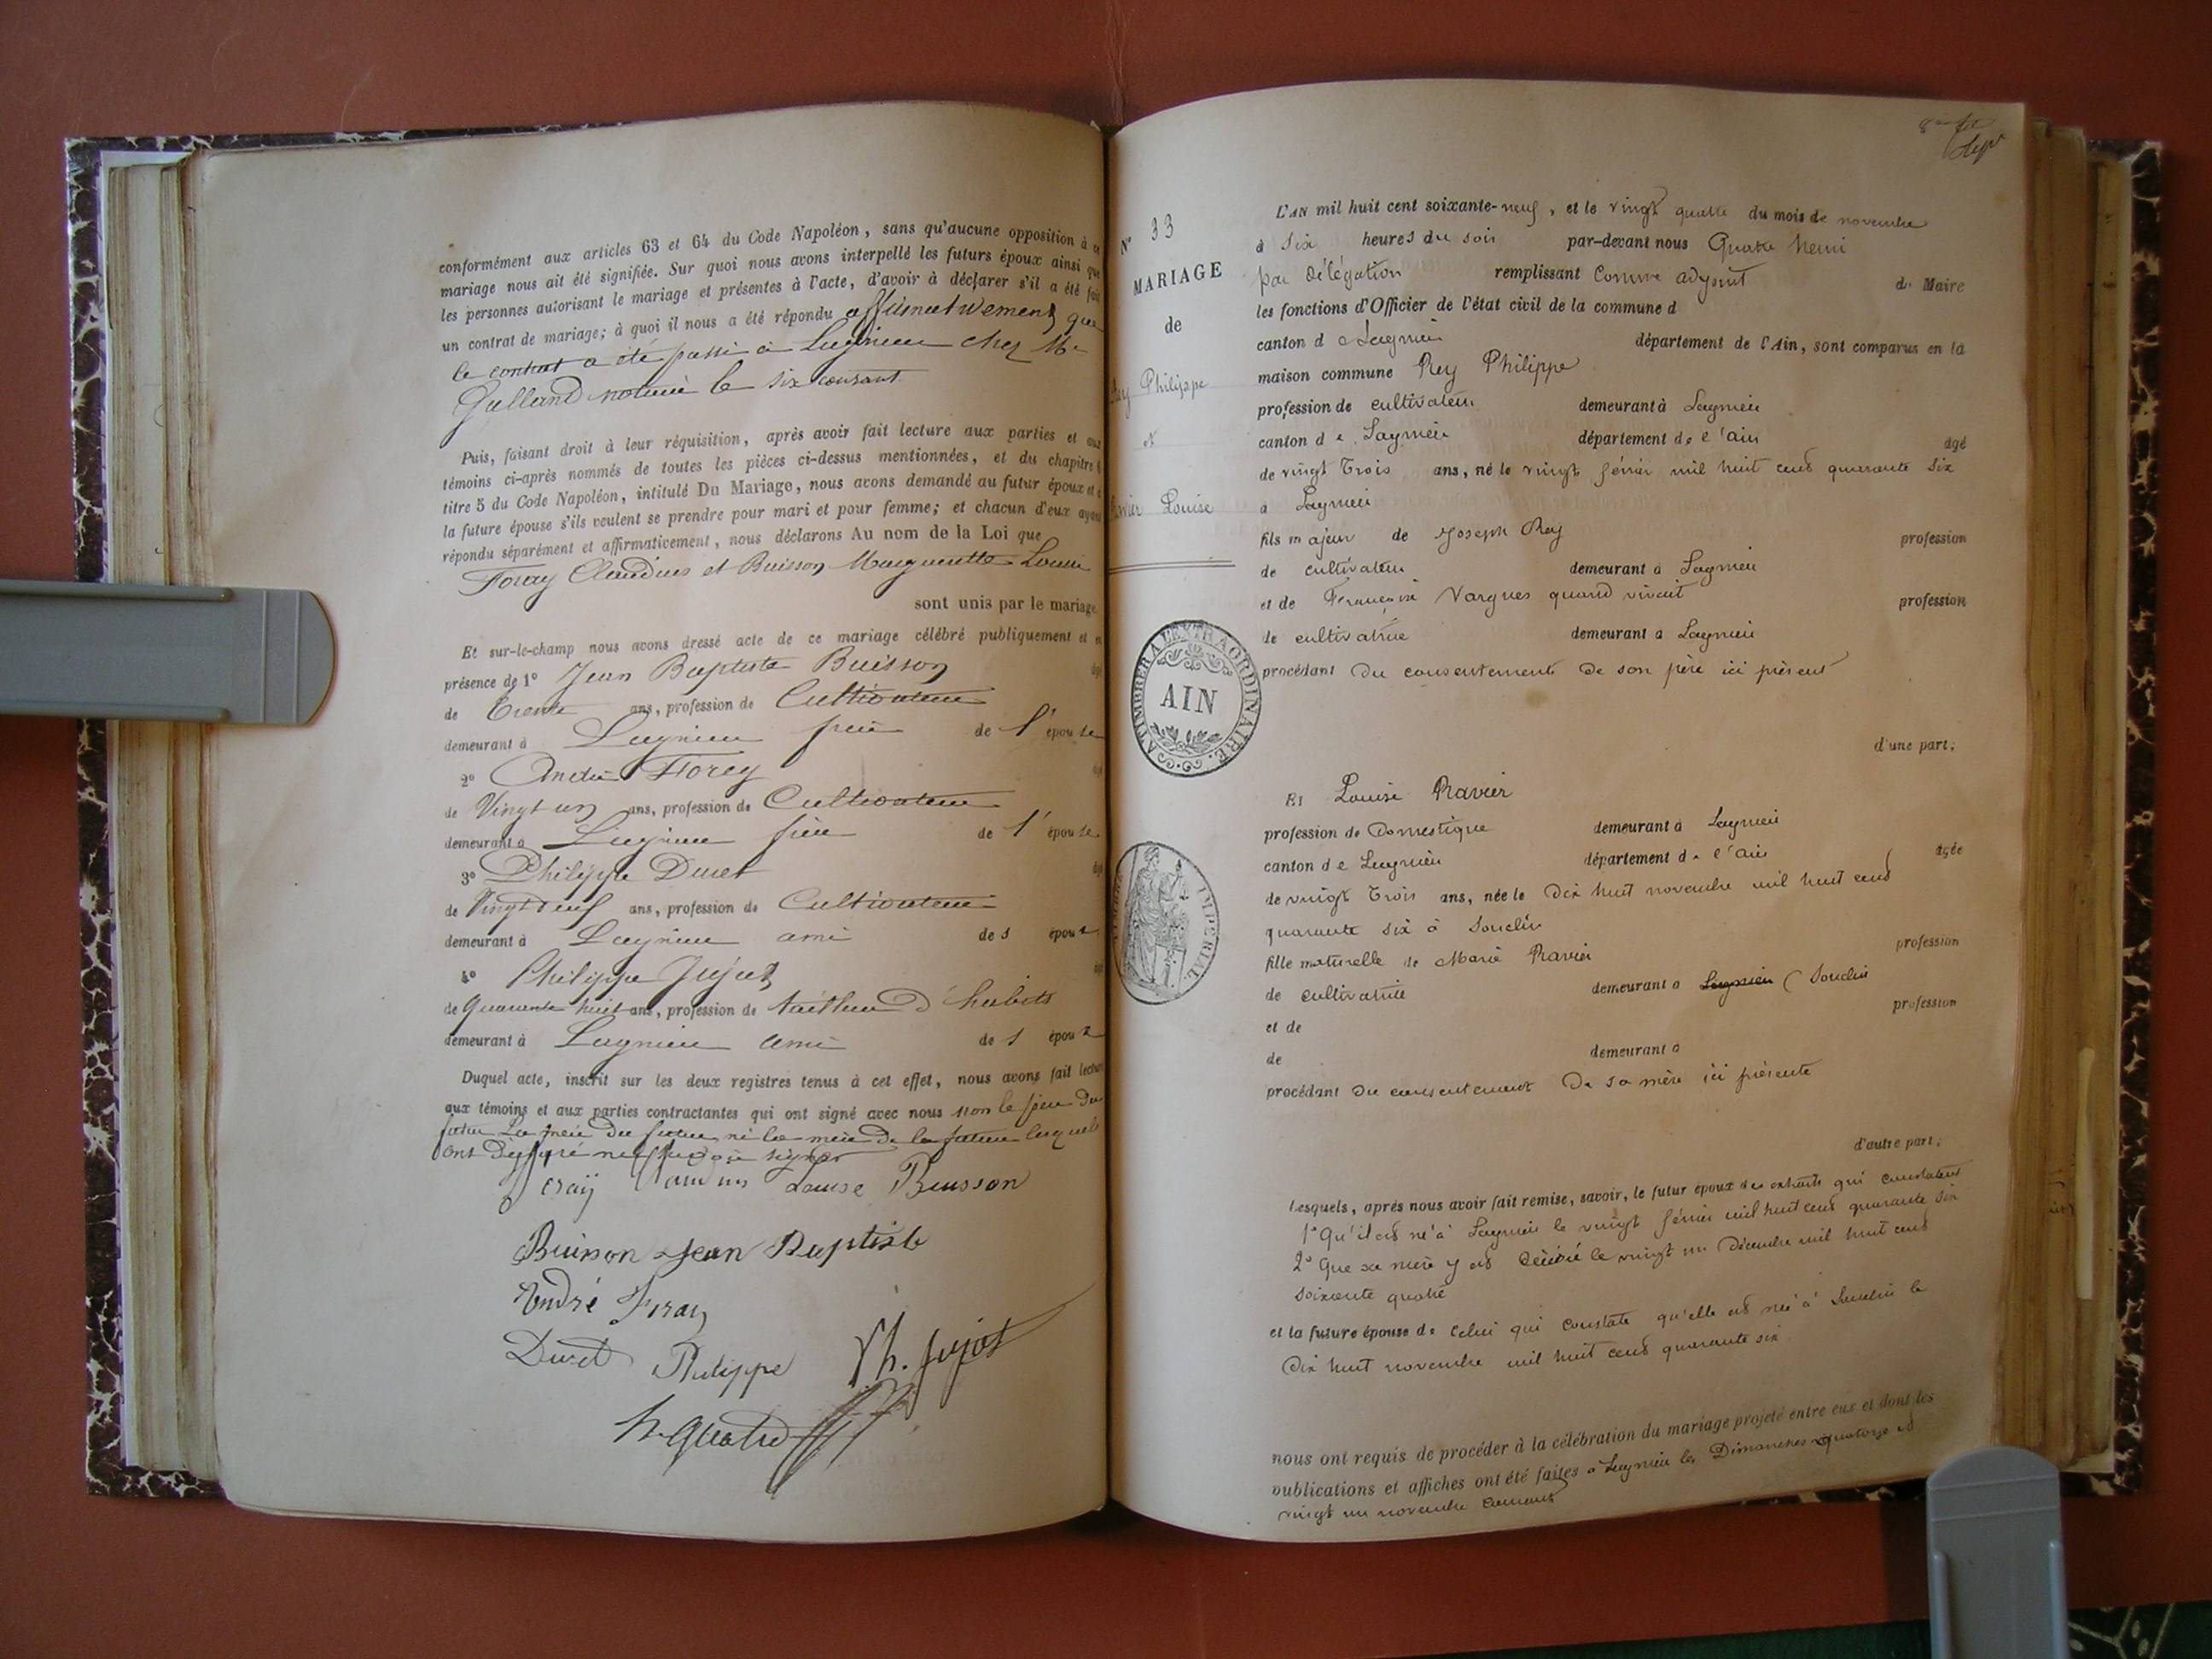 conformément aux articles 63 et 64 du Code Napoléon, sans qu'aucune opposition à ce
mariage nous ait été signifiée. Sur quoi nous avons interpellé les futurs époux ainsi que
les personnes autorisant le mariage et présentes à l'acte, d'avoir à déclarer s'il a été fait
un contrat de mariage; à quoi il nous a été répondu affirmativement que
le contrat a été passé à Lagnieu chez Me
Galland notaire le six courant
Puis, faisant droit à leur réquisition, après avoir fait lecture aux parties et aux
témoins ci-après nommés de toutes les pièces ci-dessus mentionnées, et du chapitre 6
titre 5 du Code Napoléon, intitulé Du Mariage, nous avons demandé au futur époux et à
la future épouse s'ils veulent se prendre pour mari et pour femme; et chacun d'eux ayant
répondu séparément et affirmativement, nous déclarons Au nom de la Loi que
Foray Claudius et Buisson Marguerite Louise
sont unis par le mariage.
Et sur-le-champ nous avons dressé acte de ce mariage célébré publiquement et en
présence de 1° Jean Baptiste Buisson âgé
de trente ans, profession de Cultivateur
demeurant à Lagnieu frère de l'épouse
2° André Forey âgé
de Vingt un ans, profession de Cultivateur
demeurant à Lagnieu frère de l'épouse
3° Philippe Duret âgé
de Vingt neuf ans, profession de Cultivateur
demeurant à Lagnieu ami de s époux
4° Philippe Jujat âgé
de quarante huit ans, profession de tailleur d'habits
demeurant à Lagnieu ami de s époux
Duquel acte, inscrit sur les deux registres tenus à cet effet, nous avons fait lecture
aux témoins et aux parties contractantes qui ont signé avec nous non le père du
futur La mère du futur, ni la mère de la future lesquels
ont signer
Foraÿ Claudius Louise Buisson
Buisson Jean Baptiste
André Foray
Duret Philippe Ph. Jujat
h. Quatre
N° 33
MARIAGE
de
Rey Philippe
et
Ravier Louise
A TIMBRER A L'EXTRAORDINAIRE
AIN
TIMBRE IMPERIAL
L'AN mil huit cent soixante-neuf, et le vingt quatre du mois de novembre
à six heures du soir par-devant nous Quatre henri
par délégation remplissant comme adjoint de Maire
les fonctions d'Officier de l'état civil de la commune d
canton d Lagnieu département de l'Ain, sont comparus en la
maison commune Rey Philippe
profession de cultivateur demeurant à Lagnieu
canton de Lagnieu département de l'ain âgé
de vingt trois ans, né le vingt février mil huit cent quarante six
à Lagnieu
fils majeur de Joseph Rey profession
de cultivateur demeurant à Lagnieu
et de Françoise Vargues quand vivait profession
de cultivatrice demeurant à Lagnieu
procédant du consentement de son père ici présent
d'une part;
Et Louise Ravier
profession de Domestique demeurant à Lagnieu
canton de Lagnieu département de l'ain âgée
de vingt trois ans, née le dix huit novembre mil huit cent
quarante six à Souclin
fille naturelle de Marie Ravier profession
de cultivatrice demeurant à Lagnieu (Souclin
profession
et de
de demeurant à
procédant du consentement de sa mère ici présente
d'autre part;
Lesquels, après nous avoir fait remise, savoir, le futur époux des extraits qui constatent
1° Qu'il est né à Lagnieu le vingt février mil huit cent quarante six
2° Que sa mère y est décédée le vingt un Décembre mil huit cent
soixante quatre
et la future épouse de celui qui constate qu'elle est née à Souclin le
dix huit novembre mil huit cent quarante six
nous ont requis de procéder à la célébration du mariage projeté entre eux et dont les
publications et affiches ont été faites à Lagnieu les Dimanches quatorze et
vingt un novembre courant